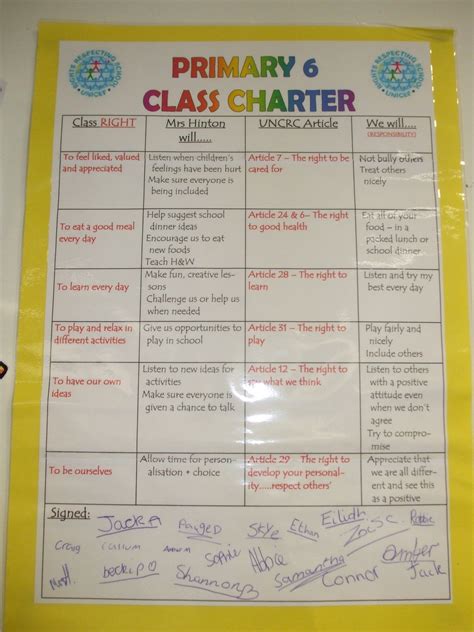 RIGHTS RESPECTING SCHOOL
UNICEF
RIGHTS RESPECTING SCHOOL
UNICEF
PRIMARY 6
CLASS CHARTER
Class RIGHT
Mrs Hinton
will.....
UNCRC Article
We will....
(RESPONSIBILITY)
To feel liked, valued
and appreciated
Listen when children's
feelings have been hurt
Make sure everyone is
being included
Article 7 – The right to be
cared for
Not bully others
Treat others
nicely
To eat a good meal
every day
Help suggest school
dinner ideas
Encourage us to eat
new foods
Teach H&W
Article 24 & 6– The right
to good health
Eat all of your
food – in a
packed lunch or
school dinner
To learn every day
Make fun, creative les-
sons
Challenge us or help us
when needed
Article 28 – The right to
learn
Listen and try my
best every day
To play and relax in
different activities
Give us opportunities to
play in school
Article 31 – The right to
play
Play fairly and
nicely
Include others
To have our own
ideas
Listen to new ideas for
activities
Make sure everyone is
given a chance to talk
Article 12 – The right to
say what we think
Listen to others
with a positive
attitude even
when we don't
agree
Try to compro-
mise
To be ourselves
Allow time for person-
alisation + choice
Article 29 – The right to
develop your personal-
ity.....respect others'
Appreciate that
we are all differ-
ent and see this
as a positive
Signed:
Jack A
Skye
Ethan
Eilidh
Robbie
Craig
Callum
Sophie
Abbie
Amber
Niall
Shannon B
Samantha
Connor
Jack